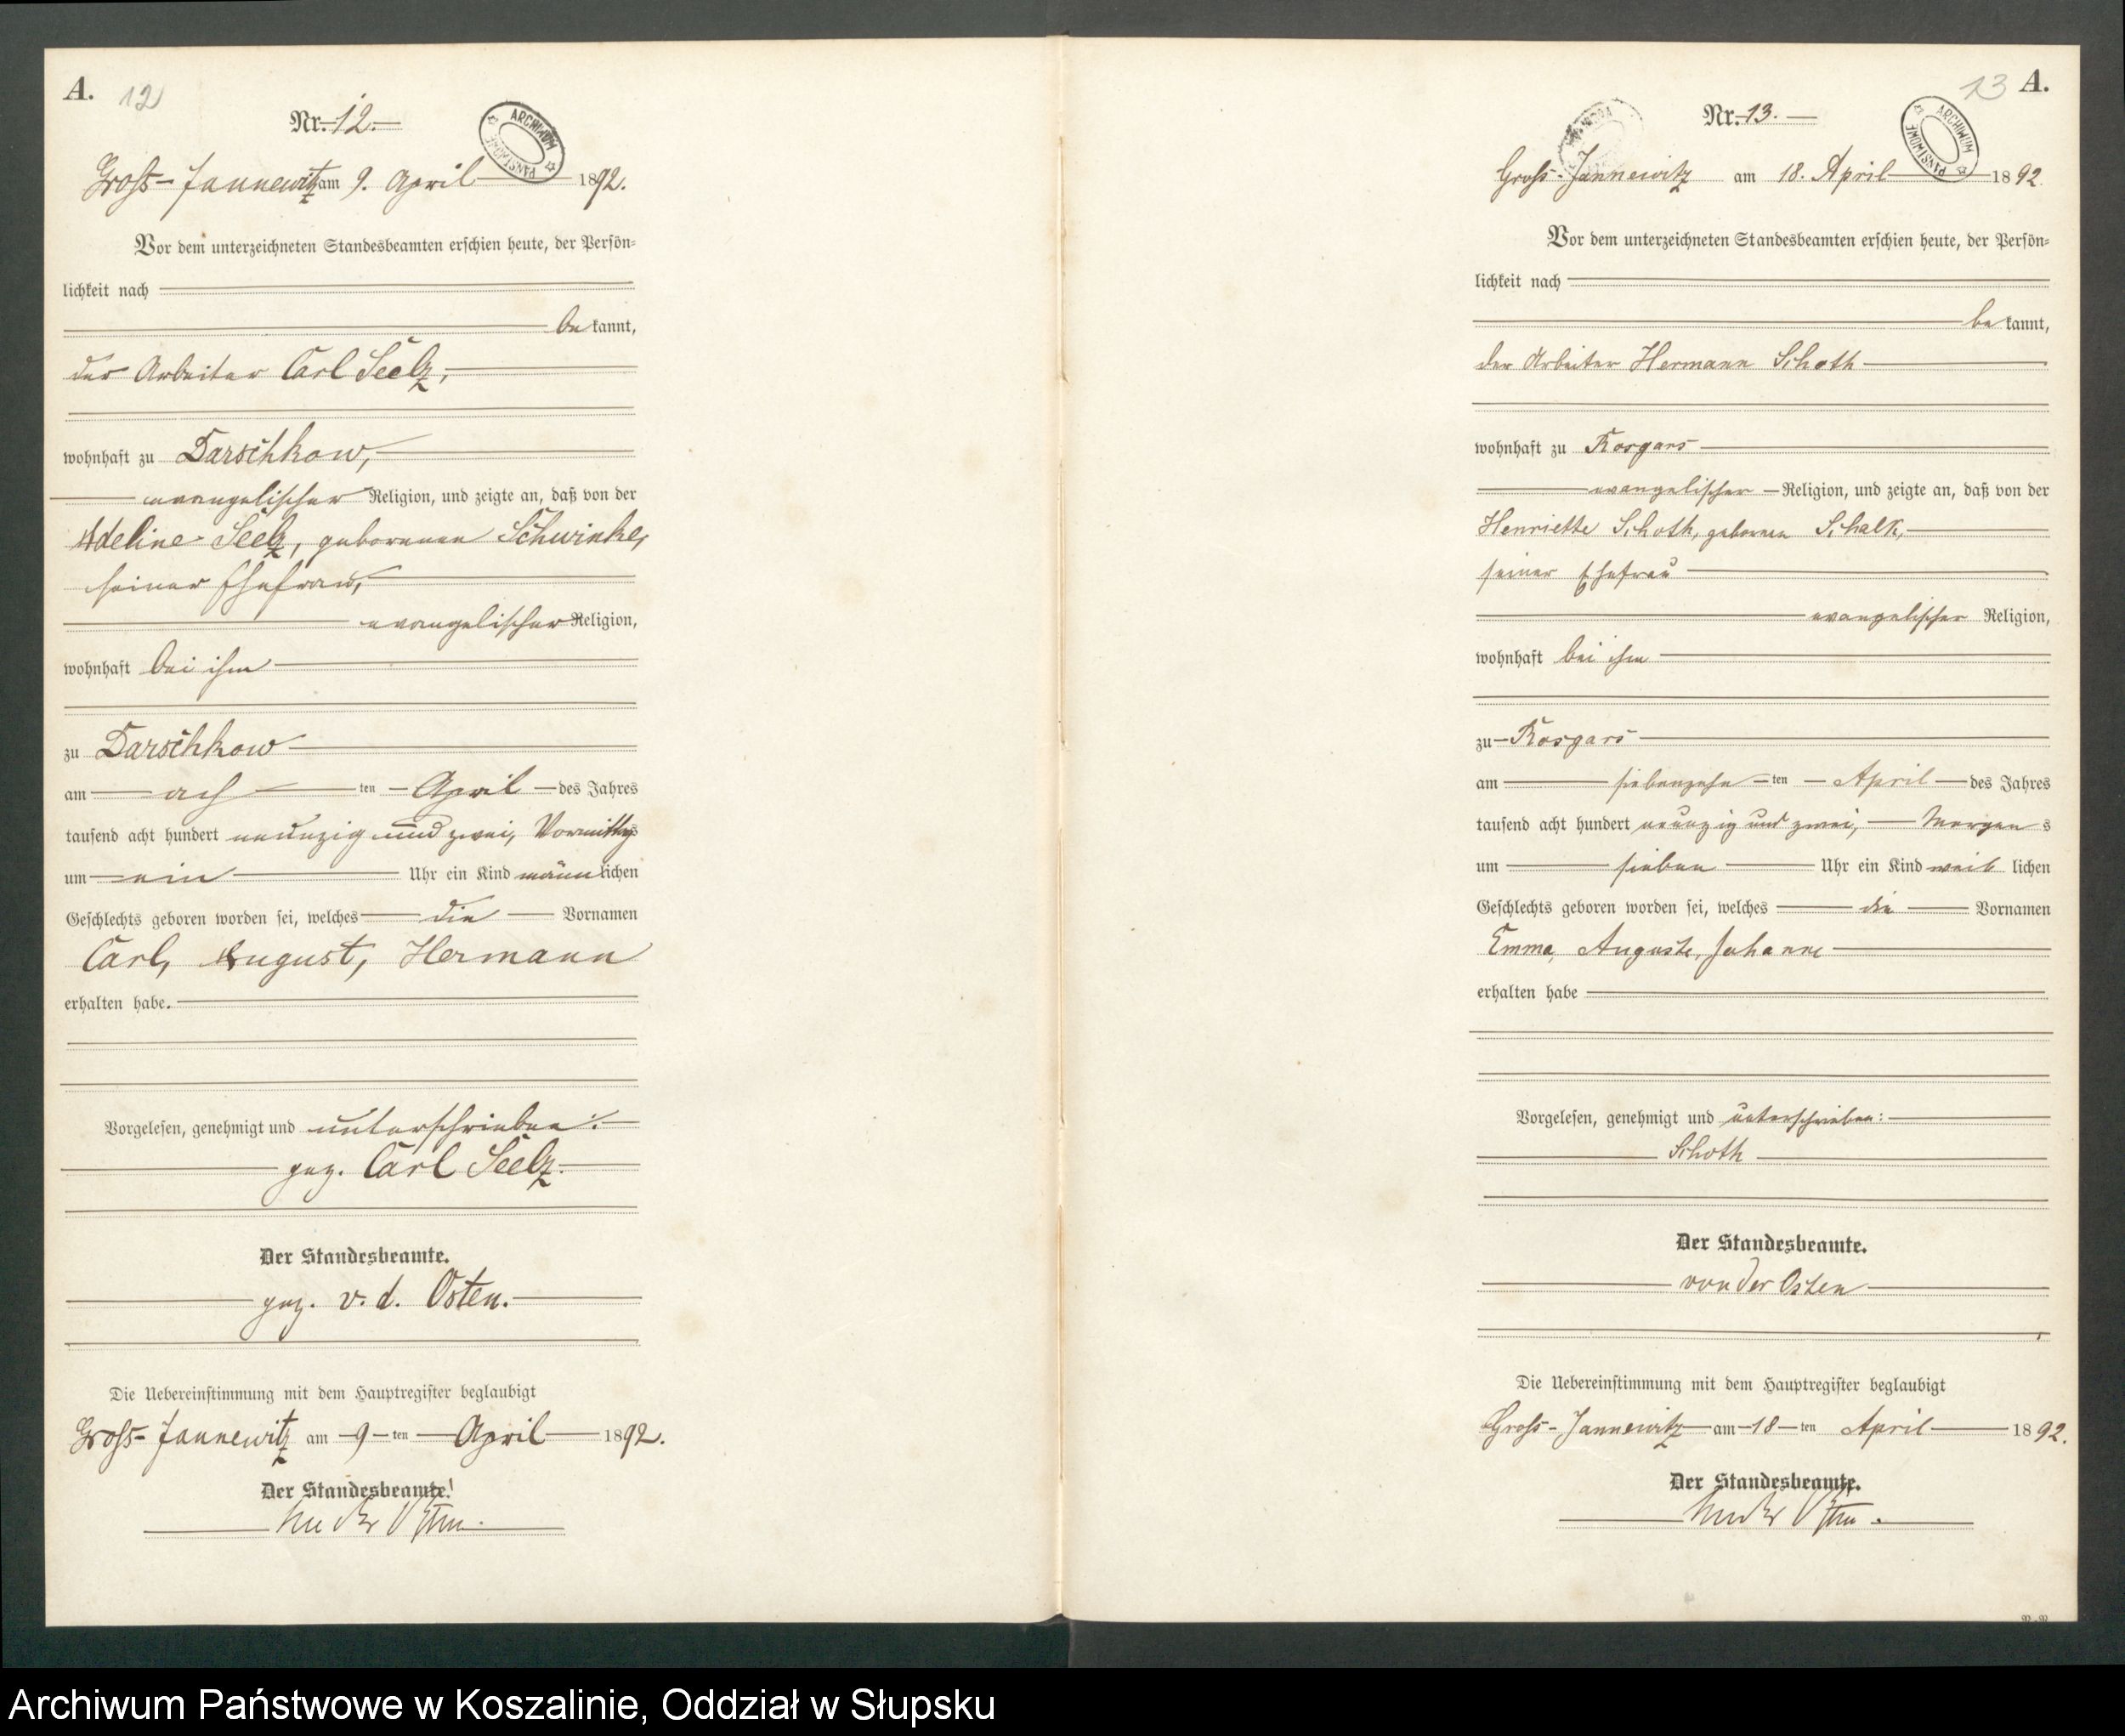 A. 12
Nr. 12.
ARCHIWUM PAŃSTWOWE
Gross-Jannewitz am 9. April 1892.
Vor dem unterzeichneten Standesbeamten erschien heute, der Persön-
lichkeit nach
be kannt,
der Arbeiter Carl Seelz,
wohnhaft zu Darschkow,
evangelischer Religion, und zeigte an, daß von der
Adeline Seelz, geborenen Schwinke,
seiner Ehefrau,
evangelischer Religion,
wohnhaft bei ihm
zu Darschkow
am ach ten April des Jahres
tausend acht hundert neunzig und zwei, Vormittags
um ein Uhr ein Kind männlichen
Geschlechts geboren worden sei, welches die Vornamen
Carl, August, Hermann
erhalten habe.
Vorgelesen, genehmigt und unterschrieben:
gez. Carl Seelz.
Der Standesbeamte.
gez. v. d. Osten.
Die Uebereinstimmung mit dem Hauptregister beglaubigt
Gross-Jannewitz am 9 ten April 1892.
Der Standesbeamte.
von der Osten.
13 A.
Nr. 13.
ARCHIWUM PAŃSTWOWE
Gross-Jannewitz am 18. April 1892
Vor dem unterzeichneten Standesbeamten erschien heute, der Persön-
lichkeit nach
be kannt,
der Arbeiter Hermann Schoth
wohnhaft zu Rosgars
evangelischer Religion, und zeigte an, daß von der
Henriette Schoth, geboren Schalk,
seiner Ehefrau
evangelischer Religion,
wohnhaft bei ihm
zu Rosgars
am siebenzehn ten April des Jahres
tausend acht hundert neunzig und zwei, Morgen s
um sieben Uhr ein Kind weib lichen
Geschlechts geboren worden sei, welches die Vornamen
Emma, Auguste, Johanne
erhalten habe
Vorgelesen, genehmigt und unterschrieben:
Schoth
Der Standesbeamte.
von der Osten
Die Uebereinstimmung mit dem Hauptregister beglaubigt
Gross-Jannewitz am 18 ten April 1892.
Der Standesbeamte.
von der Osten.
Archiwum Państwowe w Koszalinie, Oddział w Słupsku